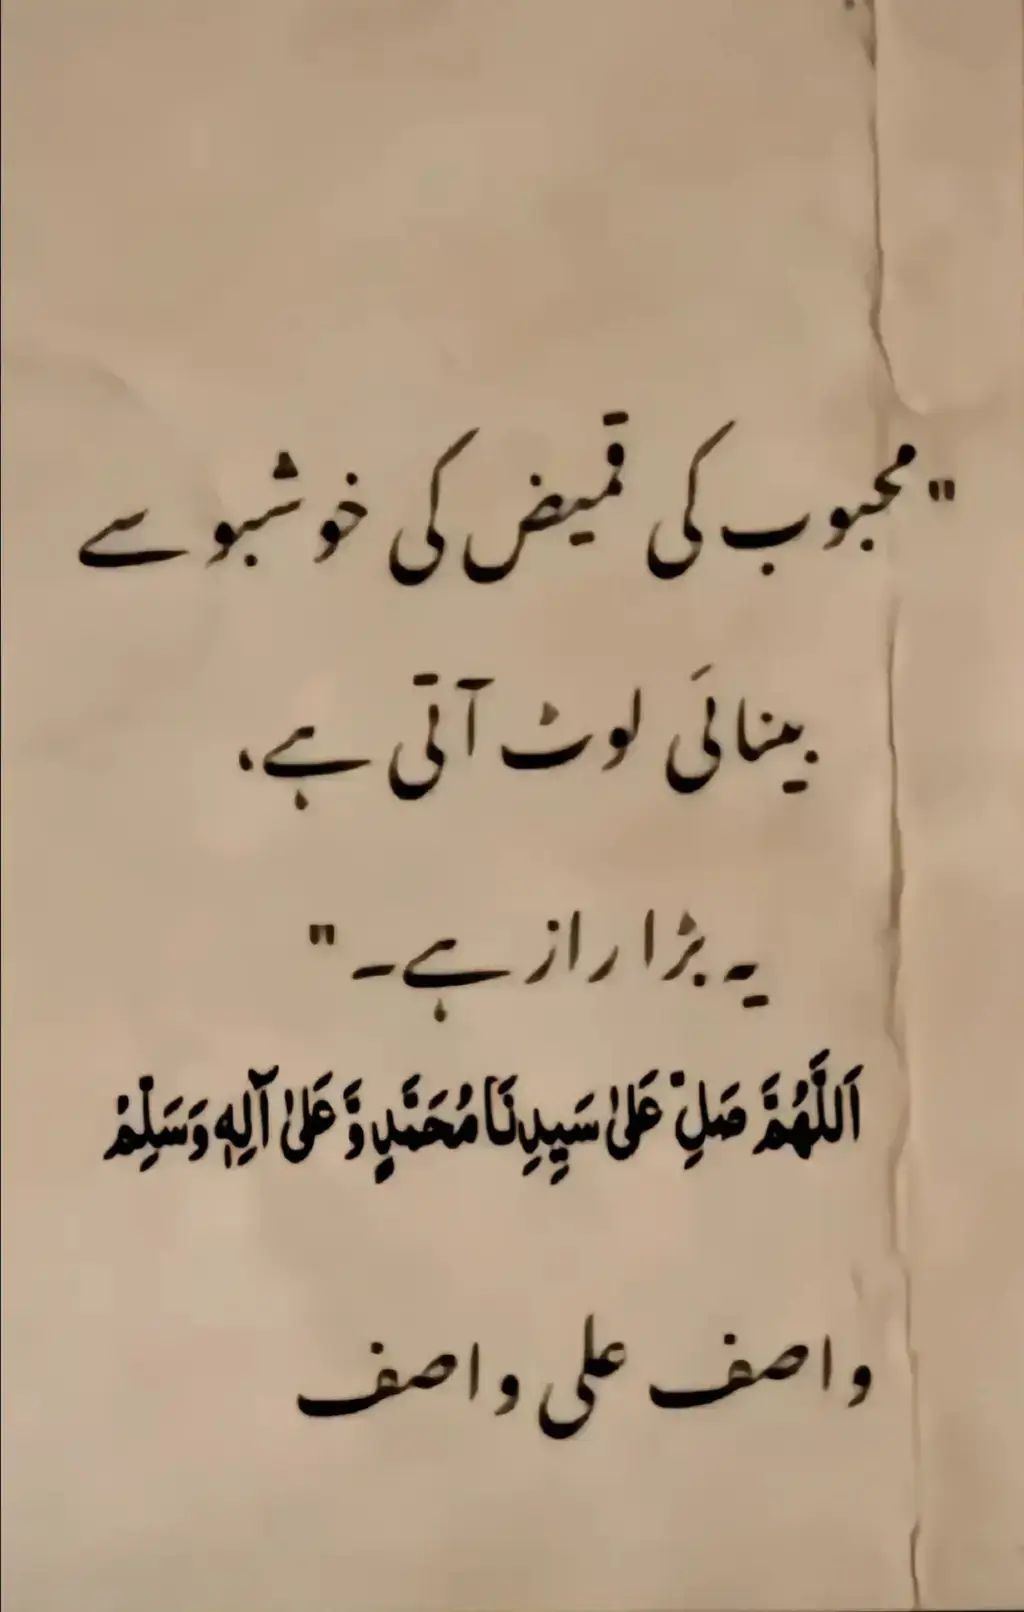 "محبوب کی قمیض کی خوشبو سے
بینائی لوٹ آتی ہے،
یہ بڑا راز ہے۔"
اَللّٰهُمَّ صَلِّ عَلٰى سَيِّدِنَا مُحَمَّدٍ وَّ عَلٰى آلِهٖ وَسَلِّمْ
واصف علی واصف